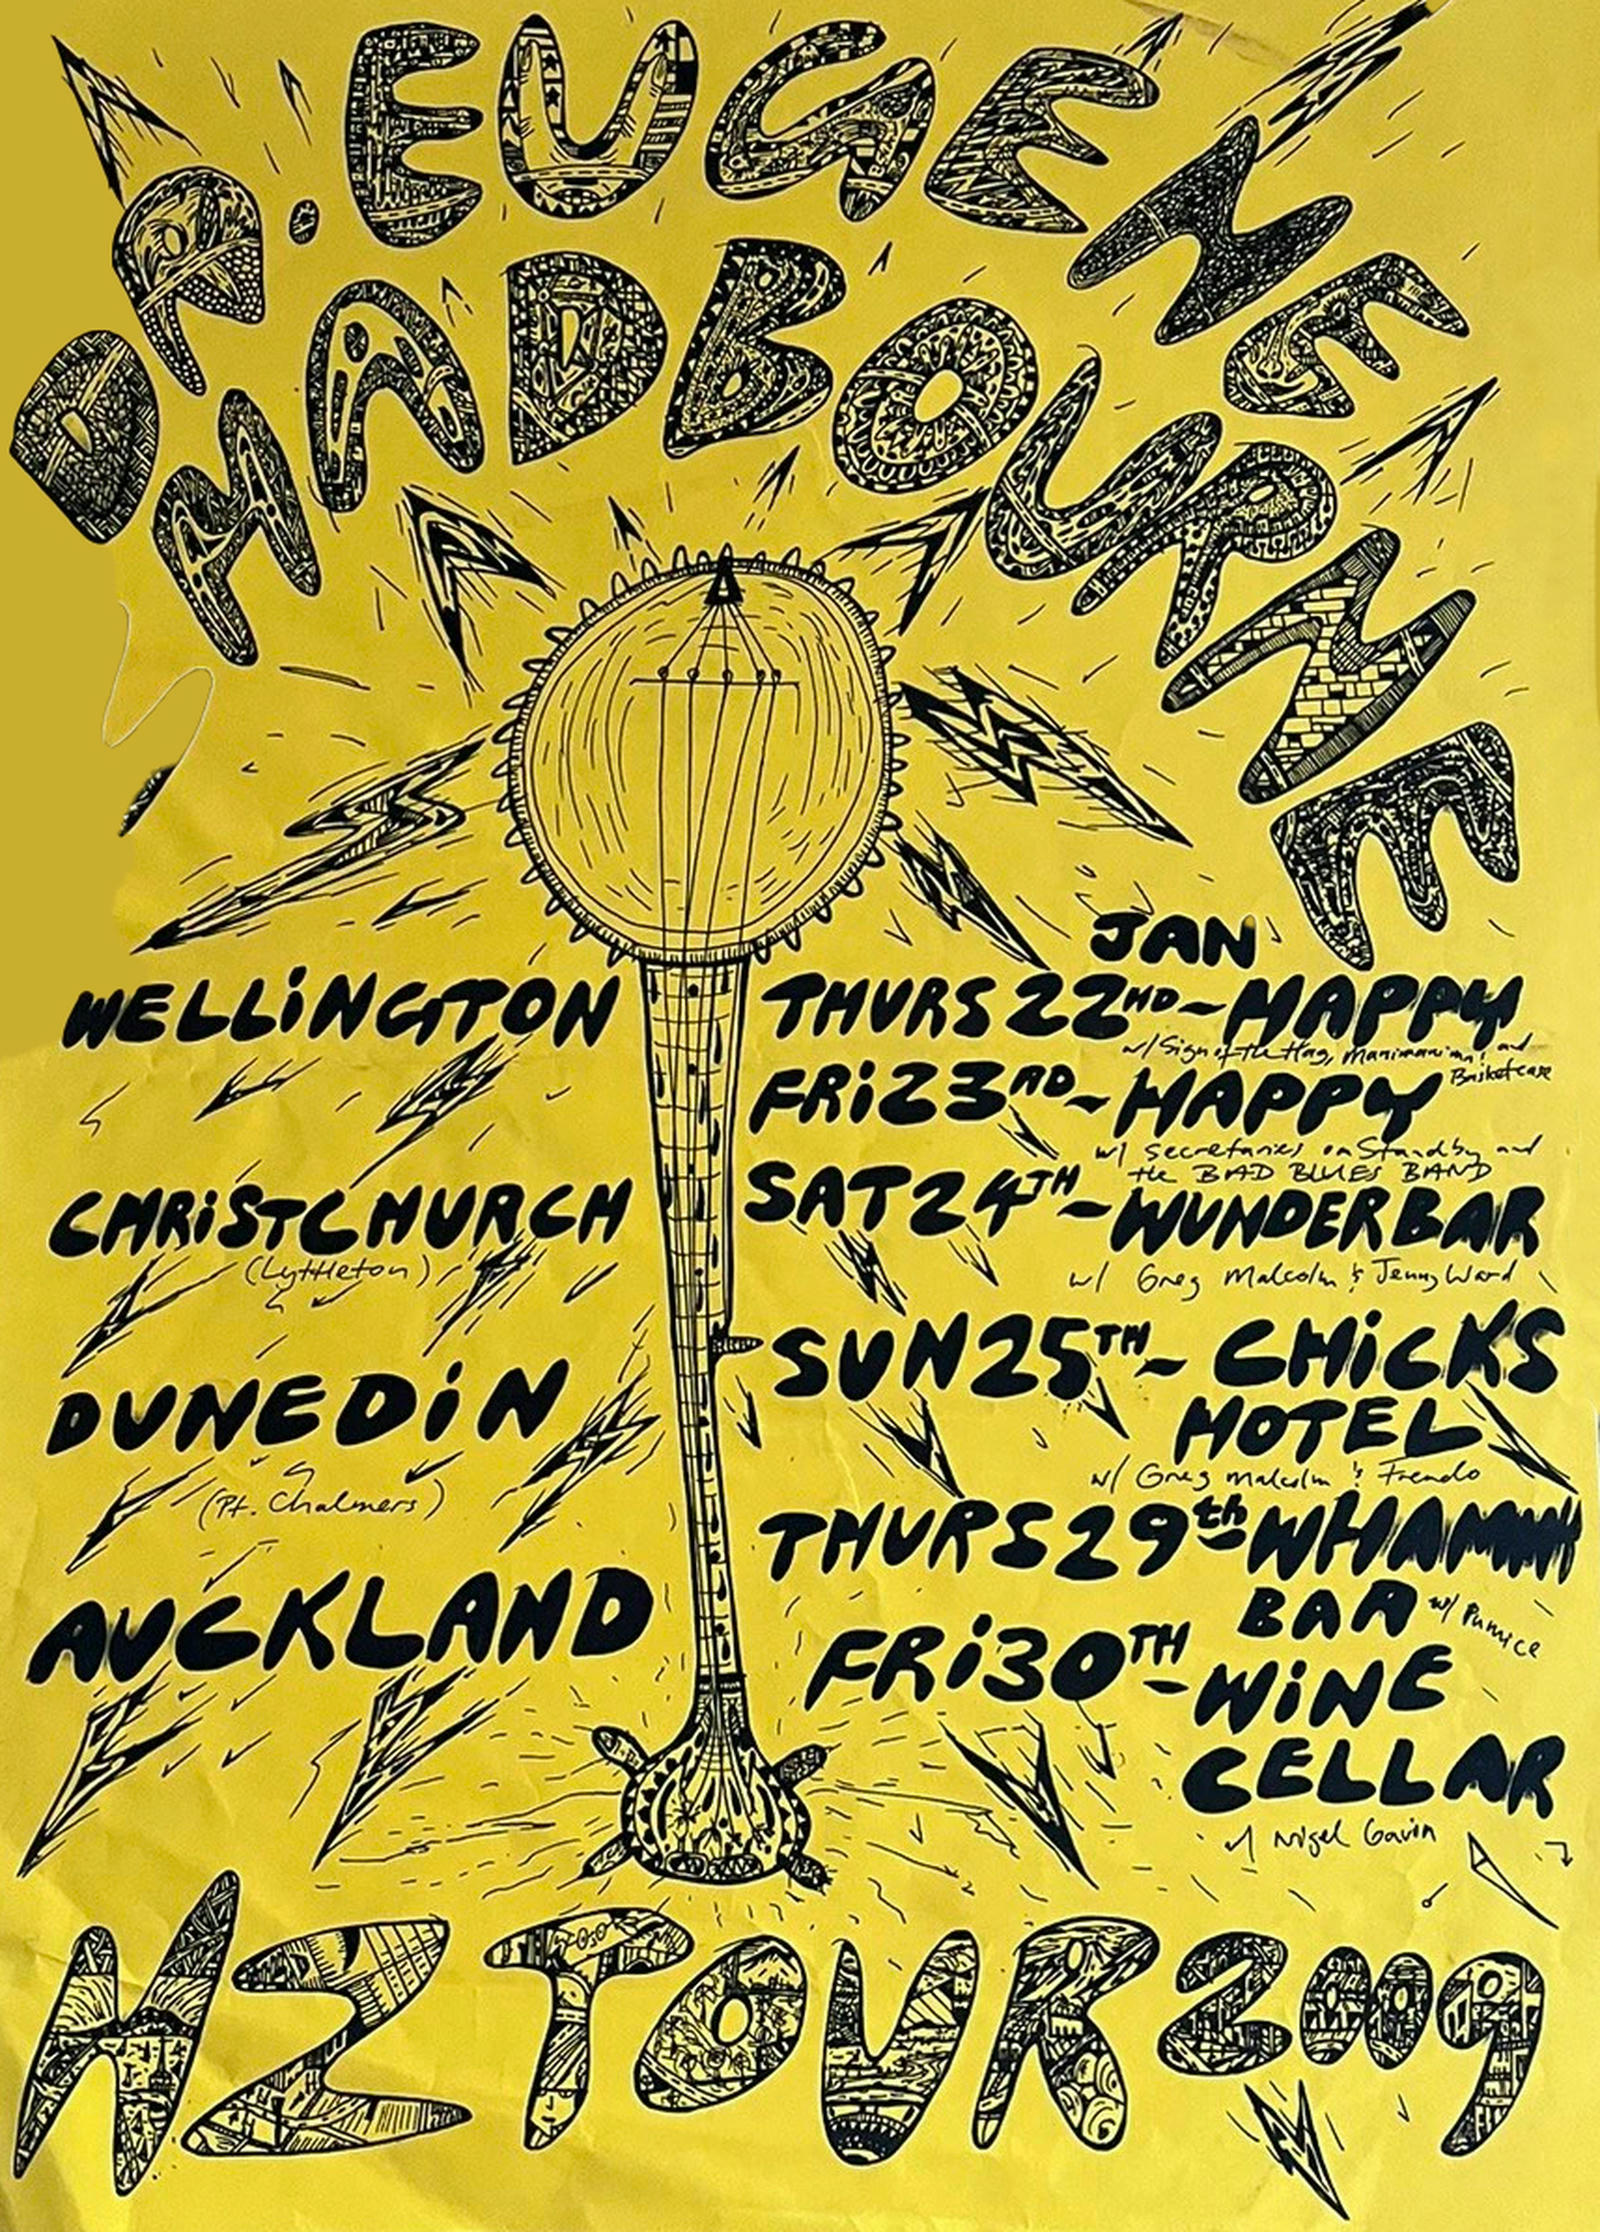 DR. EUGENE
CHADBOURNE
JAN
WELLINGTON THURS 22ND - HAPPY
w/ Sign of the Hag, and
Basketcase
FRI 23RD - HAPPY
w/ secretaries on Standby and
the BAD BLUES BAND
CHRISTCHURCH SAT 24TH - WUNDERBAR
(Lyttleton) w/ Greg Malcolm & Jenny Ward
DUNEDIN SUN 25TH - CHICKS
HOTEL
(Pt. Chalmers) w/ Greg Malcolm &
AUCKLAND THURS 29th - WHAMMY
BAR w/ Pumice
FRI 30TH - WINE
CELLAR
w/ Nigel Gavin
NZ TOUR 2009